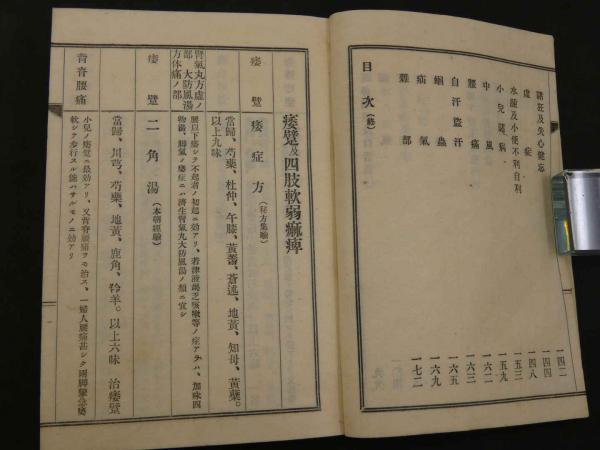 諸狂及失心健忘 一四二
虚症 一四四
水腫及小便不利自利 一四八
小兒諸病 一五三
中風 一五九
腰痛 一六二
自汗盜汗 一六三
蛔蟲 一六五
疝氣 一六九
雜部 一七二
目次(終)
痿躄及四肢軟弱痲痺
痿躄
痿症方(秘方集驗)
當歸、芍藥、杜仲、午膝、黃蓍、蒼朮、地黃、知母、黃蘗。
以上九味
腎氣丸方虛ノ部 大防風湯方休痛ノ部
腰以下痿シテ不起者ノ初起ニ効アリ、若津液竭乏咳嗽等ノ症アラハ、加味四
物湯、脚氣ノ痿症ニハ濟生腎氣丸大防風湯ノ類ニ宜シ
痿躄
二角湯(本朝經驗)
當歸、川芎、芍藥、地黃、鹿角、羚羊。以上六味 治痿躄
背脊腰痛
小兒ノ痿躄ニ最効アリ、又背脊腰痛ヲモ治ス、一婦人腰痛甚シク兩脚攣急痿
軟シテ步行スル能ハサルモノニ効アリ